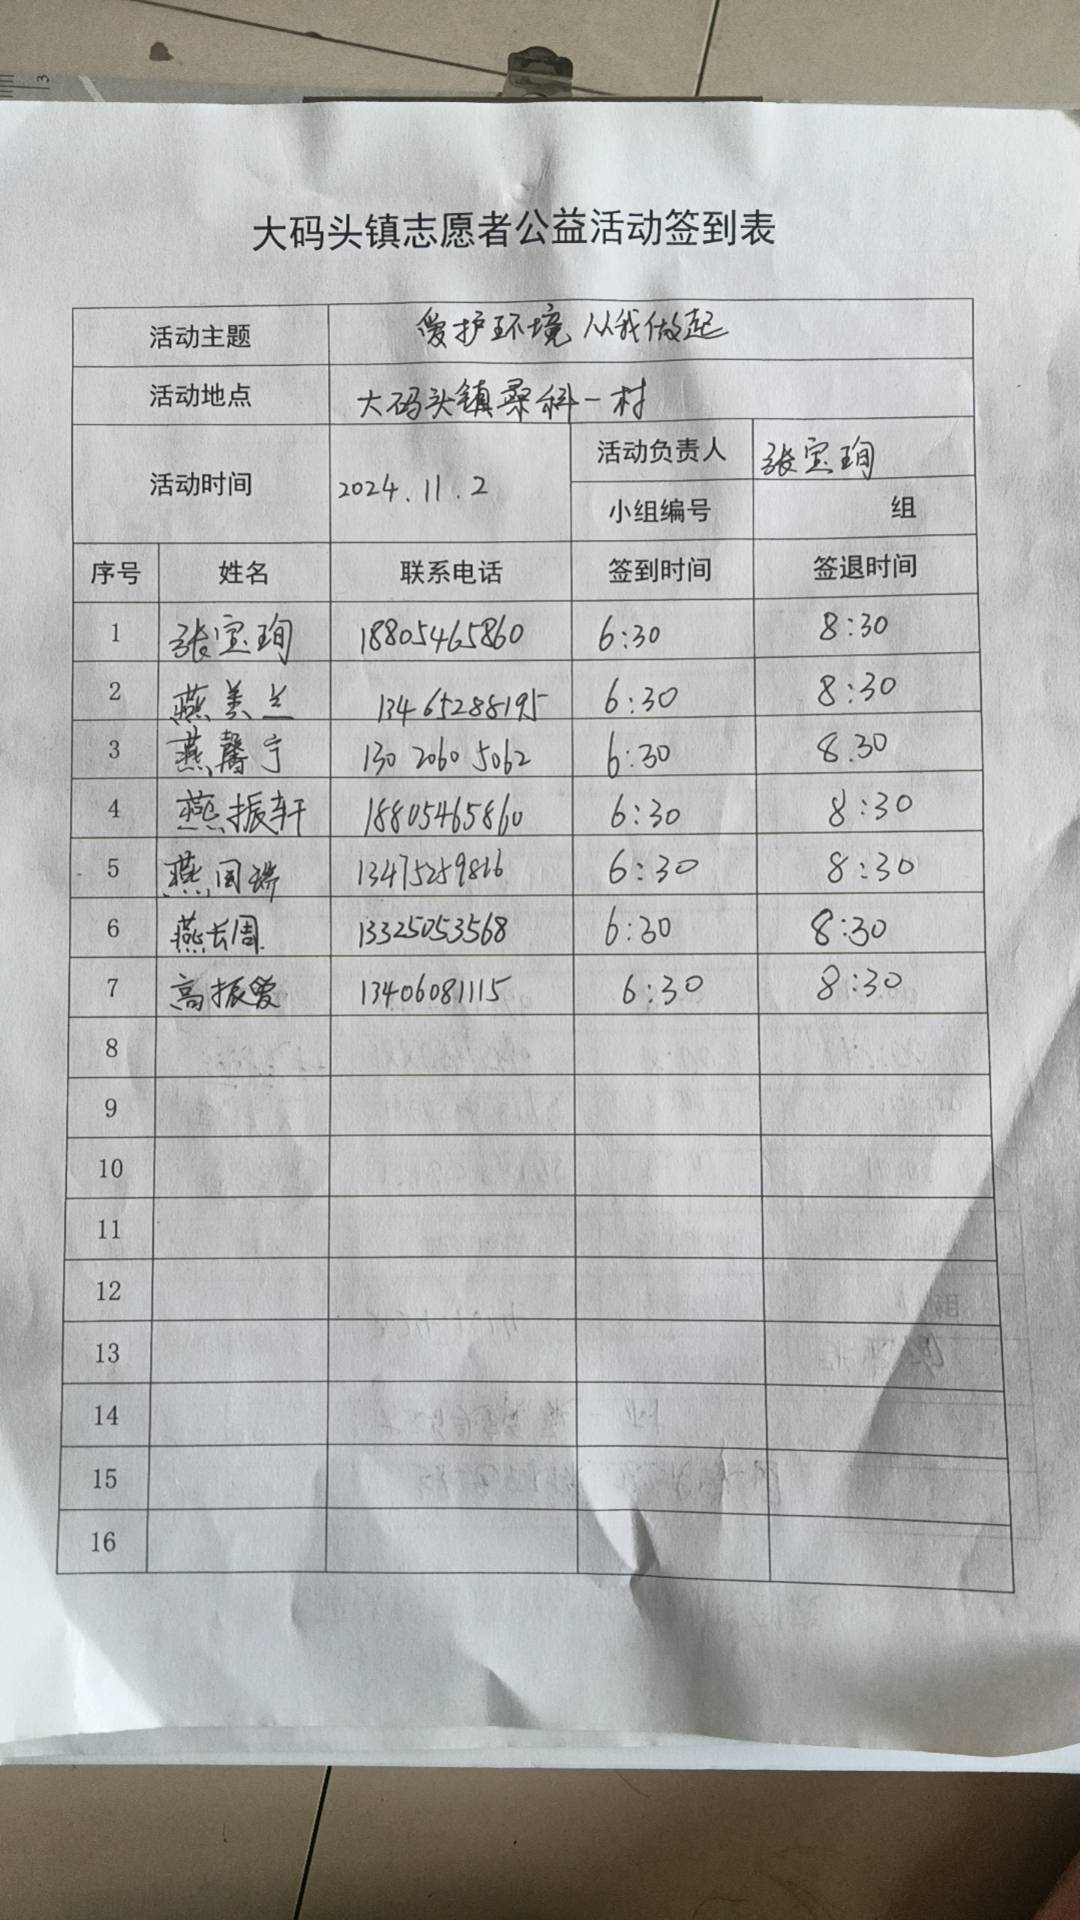 大码头镇志愿者公益活动签到表
活动主题 爱护环境 从我做起
活动地点 大码头镇桑科一村
活动时间 2024.11.2 活动负责人 张宝珣
小组编号 组
序号 姓名 联系电话 签到时间 签退时间
1 张宝珣 18805465860 6:30 8:30
2 燕美兰 13465288195 6:30 8:30
3 燕馨宁 130 2060 5062 6:30 8.30
4 燕振轩 18805465860 6:30 8:30
5 燕国瑞 13475259816 6:30 8:30
6 燕长周 13325053568 6:30 8:30
7 高振爱 13406081115 6:30 8:30
8
9
10
11
12
13
14
15
16